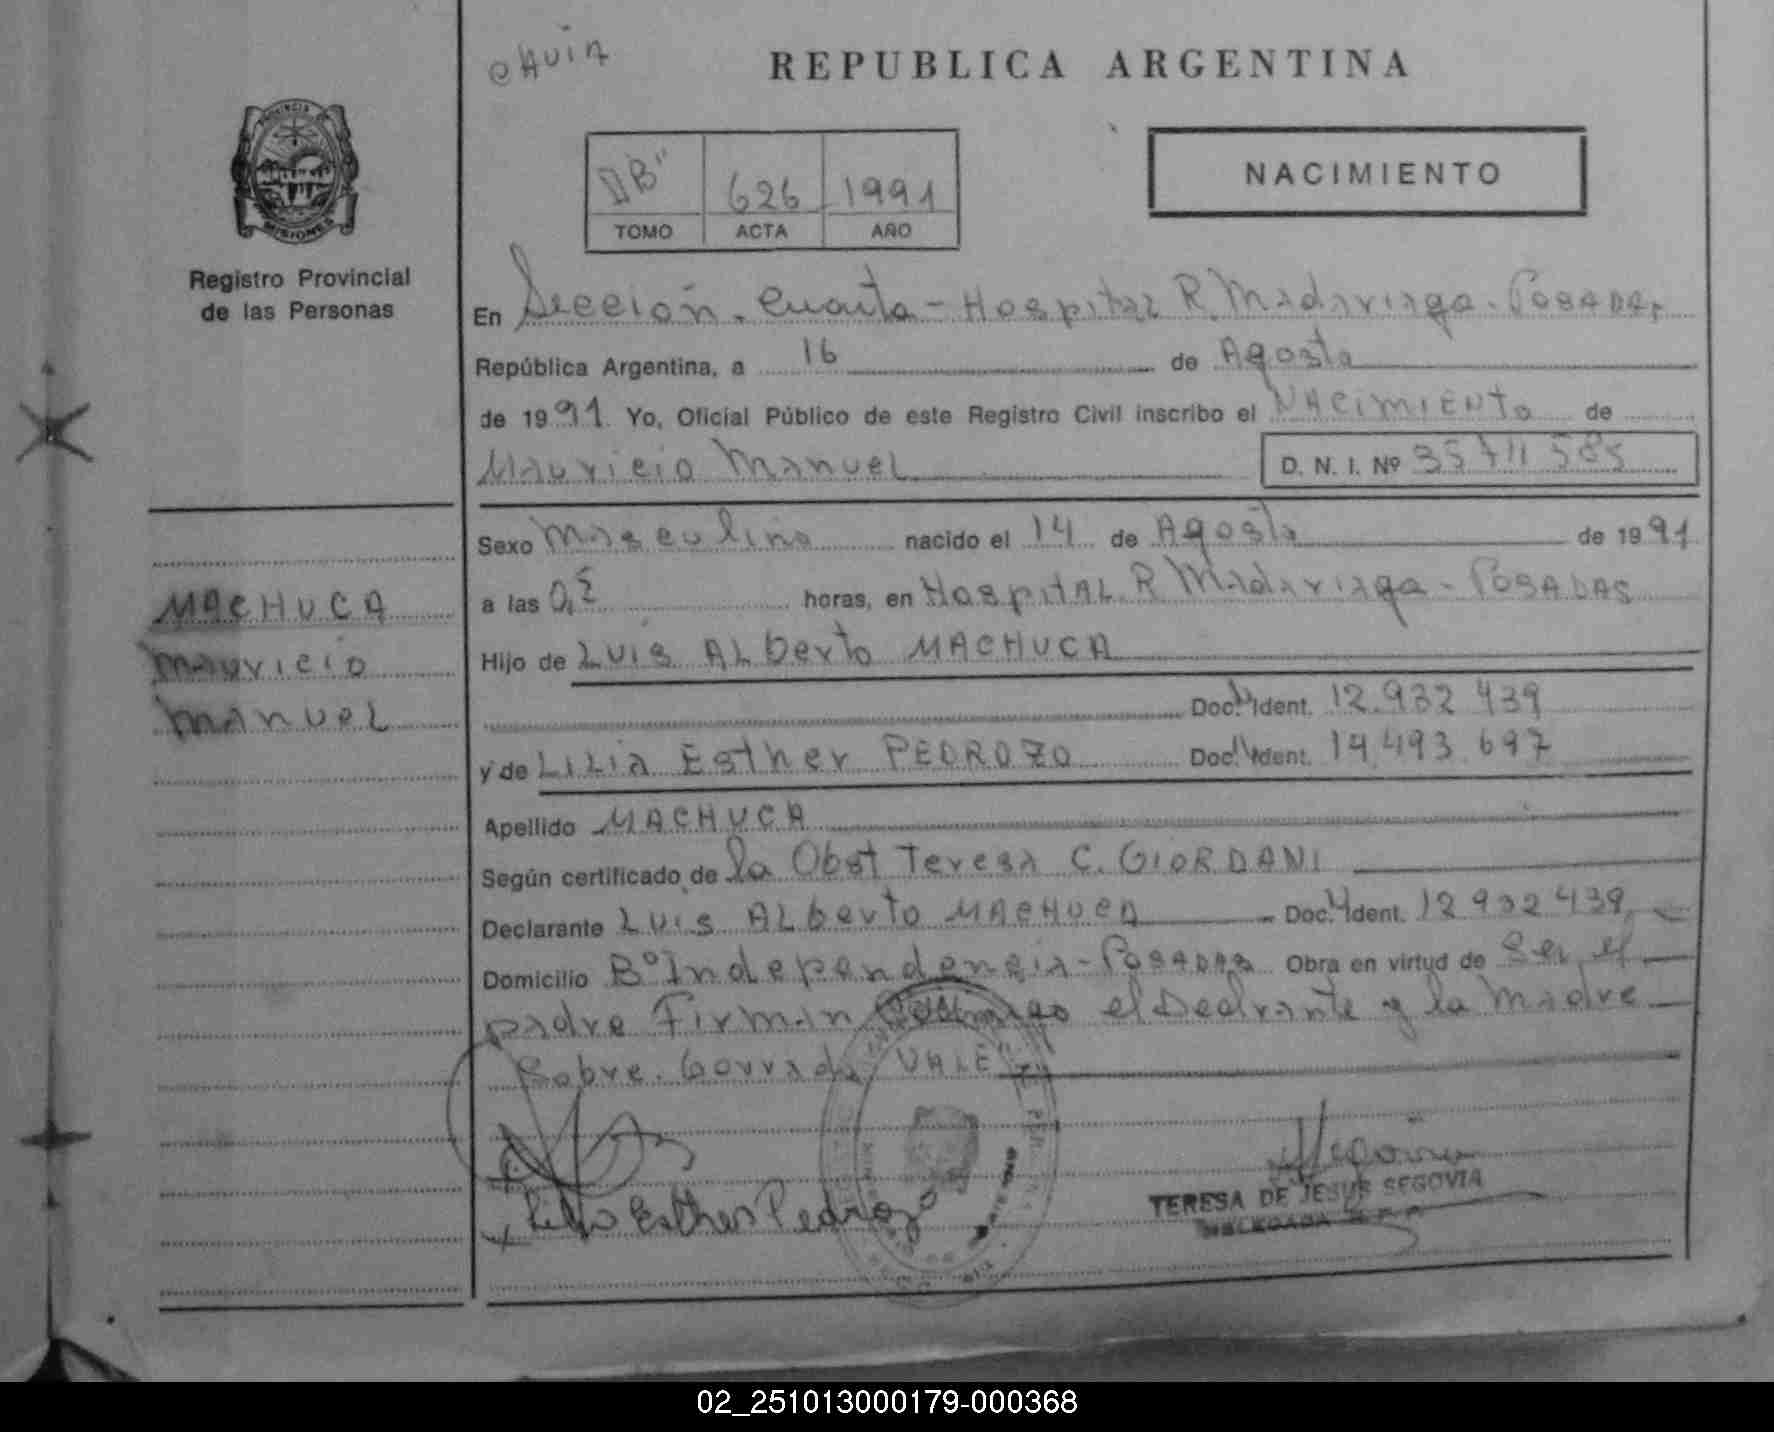 REPUBLICA ARGENTINA
PROVINCIA
MISIONES
Registro Provincial
de las Personas
626 1991
TOMO ACTA AÑO
NACIMIENTO
En Sección Cuarta - Hospital R. Madariaga - Posadas,
República Argentina, a 16 de Agosto
de 1991 Yo, Oficial Público de este Registro Civil inscribo el NACIMIENTO de
Mauricio Manuel D. N. I. Nº 35711585
Sexo Masculino nacido el 14 de Agosto de 1991
a las horas, en Hospital R Madariaga - POSADAS
MACHUCA
Mauricio
Manuel
Hijo de Luis ALberto MACHUCA
Doc. Ident. 12.932 439
y de LILIA Esther PEDROZO Doc. Ident. 14.493.697
Apellido MACHUCA
Según certificado de la Obst Teresa C. GIORDANI
Declarante Luis ALberto MACHUCA Doc. Ident. 12 932 439
Domicilio Bº Independencia - POSADAS Obra en virtud de Ser el
padre Firman el Declrante y la Madre
Sobre. Borrado VALE
Esther Pedrozo
TERESA DE JESUS SEGOVIA
02_251013000179-000368